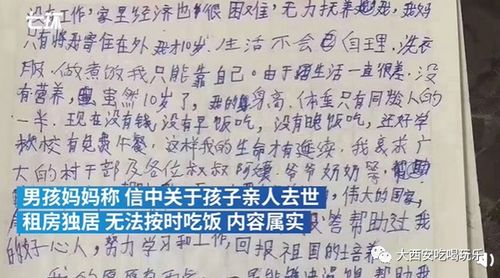 七环
没有工作，家里经济也很困难，无力扶养我，我妈
只有将我寄住在外，我才10岁，生活不会自理，洗衣
服、做煮放我只能靠自己。由于生活一直很差，没
有营养，虽然10岁了，我的身高、体重只有同龄人的
一半。现在没有钱，没有早饭吃，没有晚饭吃，还好学
校有免费午餐，这样我的生命才有延续。我哀求广
大的村干部及各位叔叔阿姨、爷爷奶奶等
伟大的国家
男孩妈妈称 信中关于孩子亲人去世
租房独居 无法按时吃饭 内容属实
答帮助过我
的好心人，努力学习和工作，回报祖国的培养
大西安吃喝玩乐